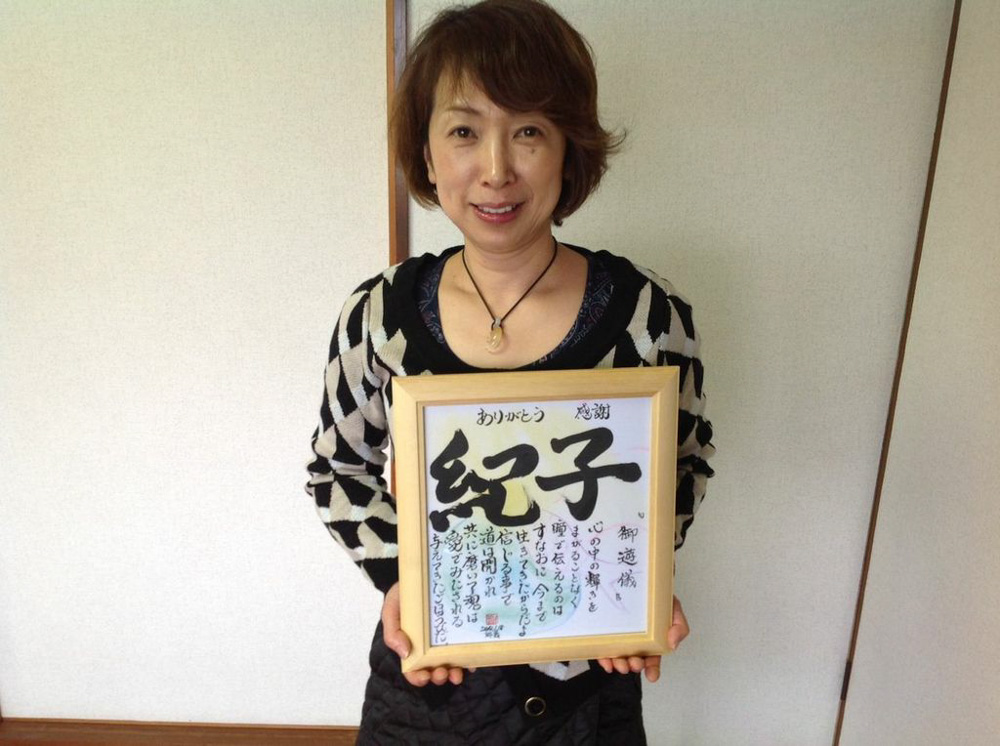 ありがとう 感謝
紀子
『御遊儀』
心の中の輝きを
まがることなく
瞳で伝えるのは
すなおに 今まで
生きてきたからだよ
信じる事で
道は開かれ
共に磨いて魂は
愛でみたされる
与えてきたごほうびだ